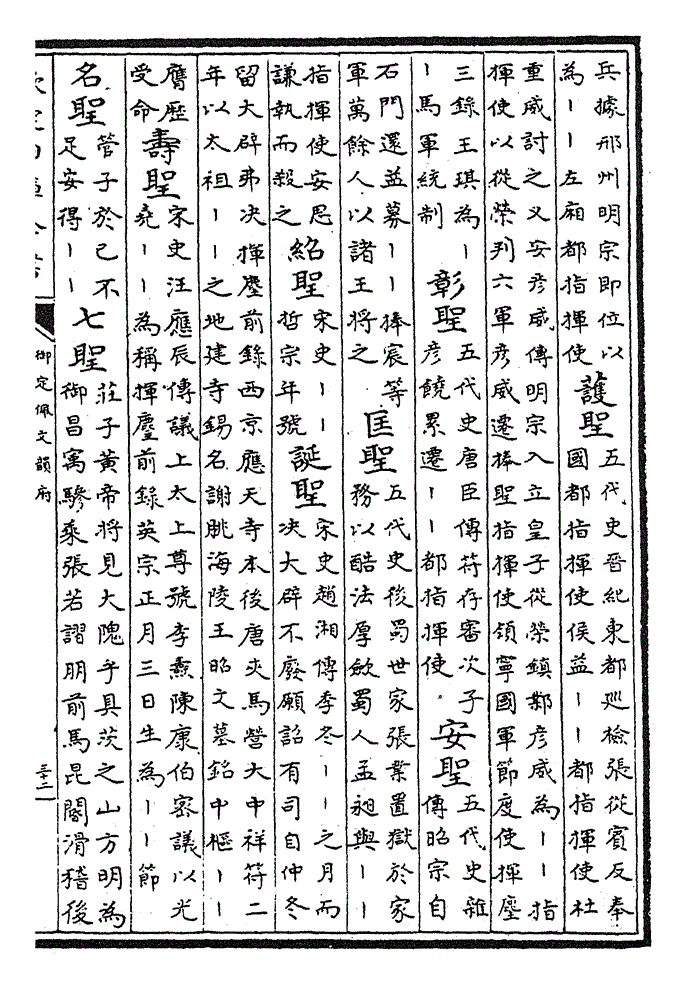 兵據邢州明宗即位以
為丨丨左廂都指揮使
護聖
五代史晉紀東都巡檢張從賓反奉
國都指揮使侯益丨丨都指揮使杜
重威討之又安彥威傳明宗入立皇子從榮鎮鄴彥威為丨丨指
揮使以從榮判六軍彥威遷捧聖指揮使領寧國軍節度使揮麈
三錄王琪為丨
丨馬軍統制
彰聖
五代史唐臣傳符存審次子
彥饒累遷丨丨都指揮使
安聖
五代史雜
傳昭宗自
石門還益募丨丨捧宸等
軍萬餘人以諸王將之
匡聖
五代史後蜀世家張業置獄於家
務以酷法厚斂蜀人孟昶與丨丨
指揮使安思
謙執而殺之
紹聖
宋史丨丨
哲宗年號
誕聖
宋史趙湘傳季冬丨丨之月而
決大辟不廢願詔有司自仲冬
留大辟弗決揮麈前錄西京應天寺本後唐夾馬營大中祥符二
年以太祖丨丨之地建寺錫名謝朓海陵王昭文墓銘中樞丨丨
膺歷
受命
壽聖
宋史汪應辰傳議上太上尊號李燾陳康伯密議以光
堯丨丨為稱揮麈前錄英宗正月三日生為丨丨節
名聖
管子於己不
足安得丨丨
七聖
莊子黃帝將見大隗乎具茨之山方明為
御昌寓驂乘張若謵朋前馬昆閽滑稽後
欽定四庫全書
御定佩文韻府
三十二